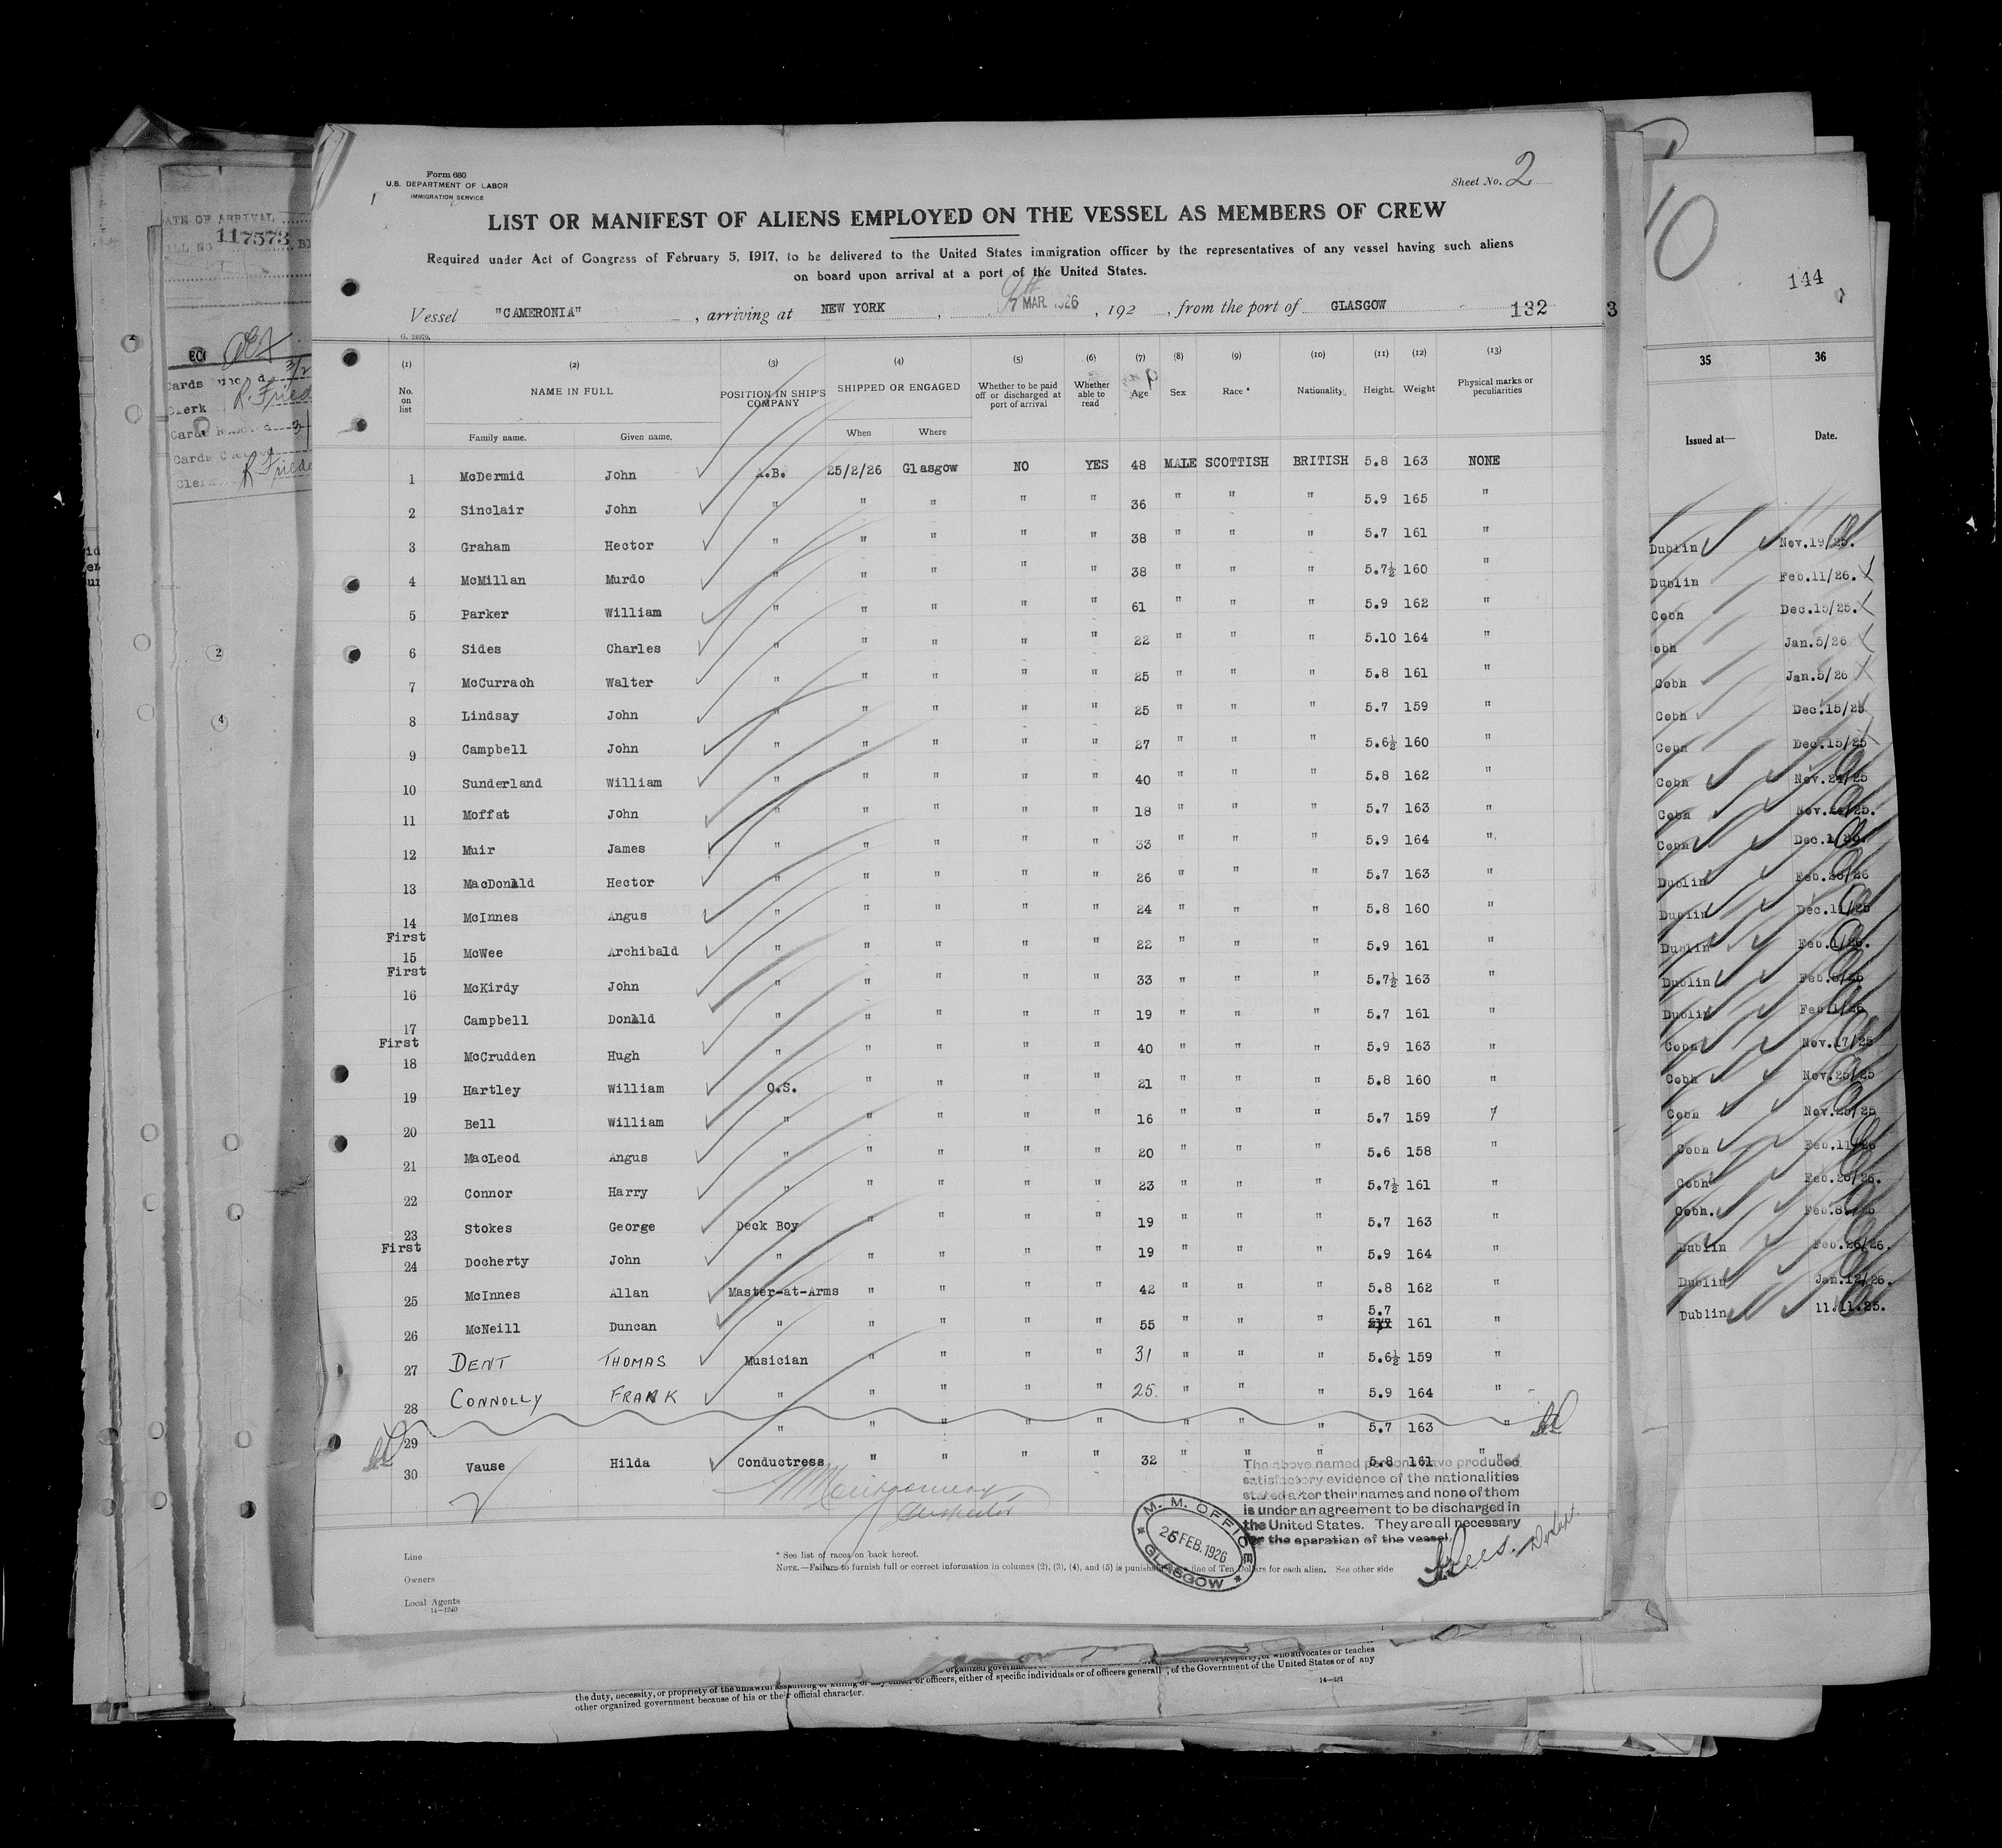 Form 680
U.S. DEPARTMENT OF LABOR
IMMIGRATION SERVICE
Sheet No. 2
LIST OR MANIFEST OF ALIENS EMPLOYED ON THE VESSEL AS MEMBERS OF CREW
Required under Act of Congress of February 5, 1917, to be delivered to the United States immigration officer by the representatives of any vessel having such aliens
on board upon arrival at a port of the United States.
Vessel "CAMERONIA", arriving at NEW YORK, 7 MAR 1926, 192, from the port of GLASGOW 132
(1) (2) (3) (4) (5) (6) (7) (8) (9) (10) (11) (12) (13)
No. on list NAME IN FULL POSITION IN SHIP'S COMPANY SHIPPED OR ENGAGED Whether to be paid off or discharged at port of arrival Whether able to read Age Sex Race * Nationality Height Weight Physical marks or peculiarities
Family name. Given name. When Where
1 McDermid John A.B. 25/2/26 Glasgow NO YES 48 MALE SCOTTISH BRITISH 5.8 163 NONE
2 Sinclair John " " " " " 36 " " " 5.9 165 "
3 Graham Hector " " " " " 38 " " " 5.7 161 "
4 McMillan Murdo " " " " " 38 " " " 5.7½ 160 "
5 Parker William " " " " " 61 " " " 5.9 162 "
6 Sides Charles " " " " " 22 " " " 5.10 164 "
7 McCurrach Walter " " " " " 25 " " " 5.8 161 "
8 Lindsay John " " " " " 25 " " " 5.7 159 "
9 Campbell John " " " " " 27 " " " 5.6½ 160 "
10 Sunderland William " " " " " 40 " " " 5.8 162 "
11 Moffat John " " " " " 18 " " " 5.7 163 "
12 Muir James " " " " " 33 " " " 5.9 164 "
13 MacDonald Hector " " " " " 26 " " " 5.7 163 "
14 McInnes Angus " " " " " 24 " " " 5.8 160 "
First
15 McWee Archibald " " " " " 22 " " " 5.9 161 "
First
16 McKirdy John " " " " " 33 " " " 5.7½ 163 "
17 Campbell Donald " " " " " 19 " " " 5.7 161 "
First
18 McCrudden Hugh " " " " " 40 " " " 5.9 163 "
19 Hartley William O.S. " " " " 21 " " " 5.8 160 "
20 Bell William " " " " " 16 " " " 5.7 159 "
21 MacLeod Angus " " " " " 20 " " " 5.6 158 "
22 Connor Harry " " " " " 23 " " " 5.7½ 161 "
23 Stokes George Deck Boy " " " " 19 " " " 5.7 163 "
First
24 Docherty John " " " " " 19 " " " 5.9 164 "
25 McInnes Allan Master-at-Arms " " " " 42 " " " 5.8 162 "
26 McNeill Duncan " " " " " 55 " " " 5.7 161 "
27 DENT THOMAS Musician " " " " 31 " " " 5.6½ 159 "
28 CONNOLLY FRANK " " " " " 25. " " " 5.9 164 "
29 " " " " " " " " 5.7 163 "
30 Vause Hilda Conductress " " " " 32 " " " 5.8 161 "
The above named persons have produced
satisfactory evidence of the nationalities
stated after their names and none of them
is under an agreement to be discharged in
the United States. They are all necessary
for the operation of the vessel.
M. M. OFFICE
26 FEB. 1926
GLASGOW
Line
Owners
Local Agents
14—1240
* See list of races on back hereof.
NOTE.—Failure to furnish full or correct information in columns (2), (3), (4), and (5) is punishable by fine of Ten Dollars for each alien. See other side
117573
R. Fried
Clerk
2
4
3
10
144
35 36
Issued at— Date.
Dublin Nov.19/25.
Dublin Feb.11/26.
Cobh Dec.15/25.
obh Jan.5/26
Cobh Jan.5/26
Cobh Dec.15/25
Cobh Dec.15/25
Cobh Nov.24/25
Cobh
Cobh
Dublin Feb.26/26
Dublin Dec.11/25
Dublin
Dublin
Dublin
Cobh Nov.17/25
Cobh Nov.25/25
Cobh Nov.25/25
Cobh Feb.11/26
Cobh Feb.26/26.
Cobh.
Dublin Feb.26/26.
Dublin Jan.12/26.
Dublin 11.11.25.
officers, either of specific individuals or of officers generally, of the Government of the United States or of any
the duty, necessity, or propriety of the unlawful
other organized government because of his or their official character.